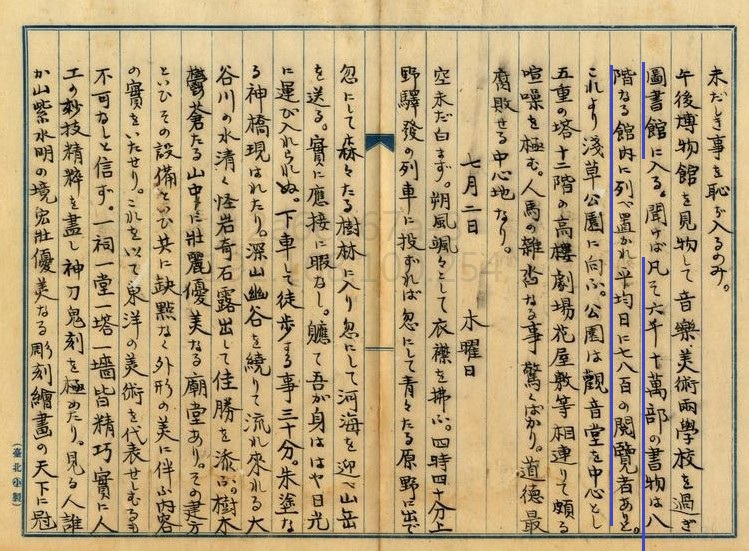 未だしき事を恥ぢ入るのみ。
午後博物館を見物して音樂、美術両學校を過ぎ
圖書館に入る。聞けば凡そ六年十萬部の書物は八
階なる館内に列べ置かれ平均日に七八百の閲覽者ありと。
これより淺草公園に向ふ。公園は觀音堂を中心とし
五重の塔十二階の高樓劇場花屋敷等相連りて頗る
喧噪を極む。人馬の雜沓なる事驚くばかり。道德最
腐敗せる中心地なり。
七月二日 木曜日
空未だ白まず。朔風颯々として衣襟を拂ふ。四時四十分上
野驛發の列車に投ずれば忽にして青々たる原野に出で
忽にして森々たる樹林に入り忽にして河海を迎へ山岳
を送る。實に應接に暇なし。軈て吾が身ははや日光
に運び入れられぬ。下車して徒歩する事三十分。朱塗な
る神橋現はれたり。深山幽谷を繞りて流れ來れる大
谷川の水清く怪岩奇石露出して佳勝を添ふ。樹木
鬱蒼たる山中に壯麗優美なる廟堂あり。その建方
といひその設備といひ共に缺點なく外形の美に伴ふ内容
の實をいたせり。これを以て東洋の美術を代表せしむるも
不可なしと信ず。一祠一堂一塔一墻皆精巧實に人
工の妙技精粹を盡し神刀鬼刻を極めたり。見る人誰
か山紫水明の境宏壯優美なる彫刻繪畫の天下に冠
(臺北小製)